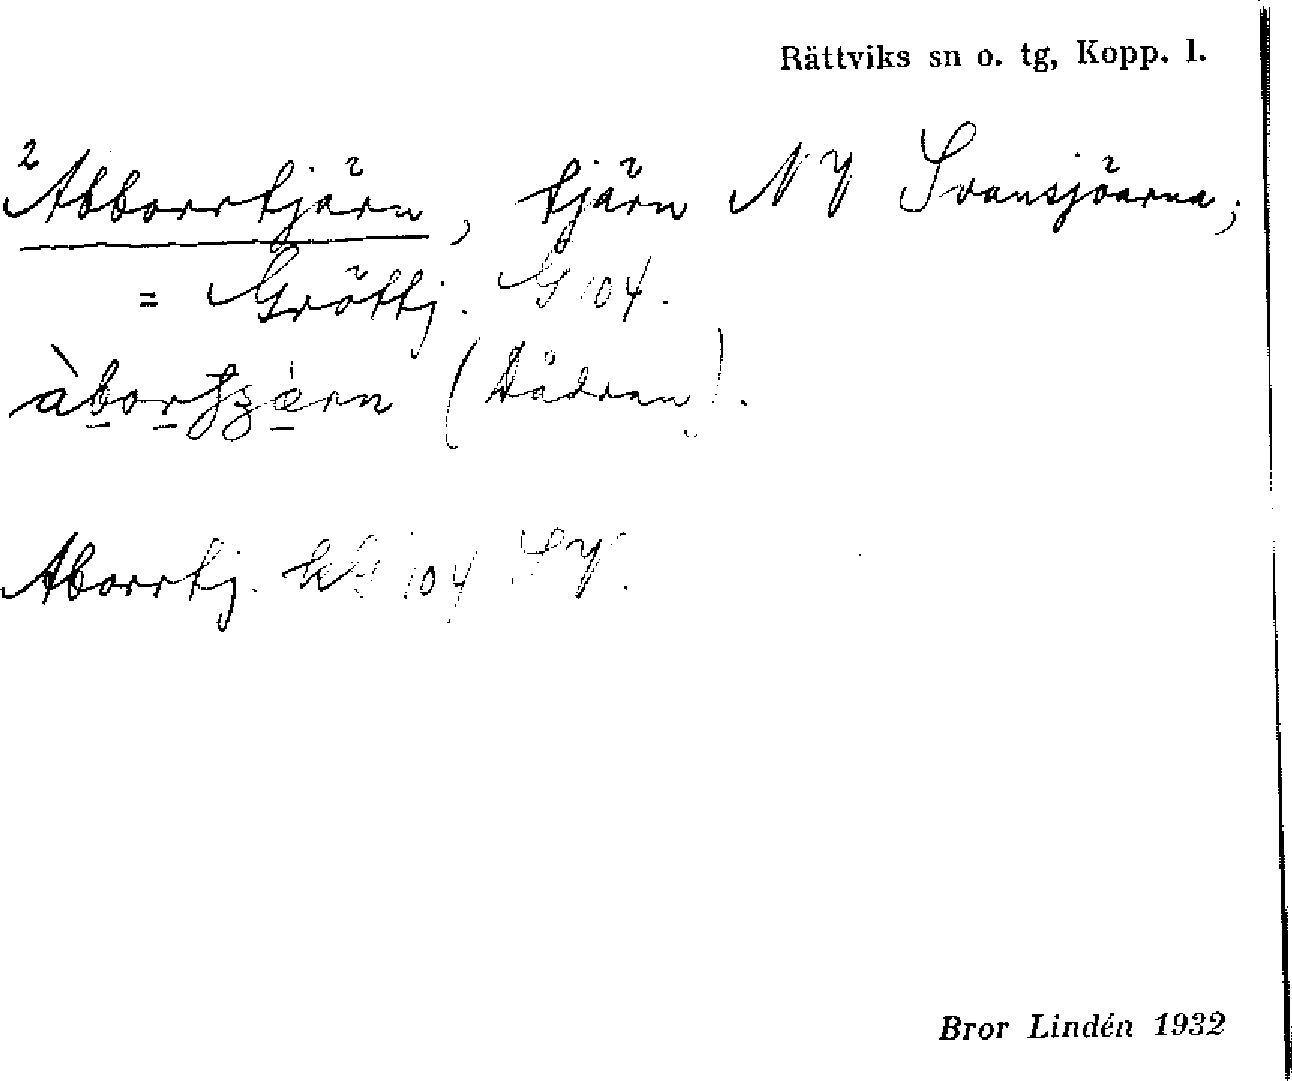 Rättviks sn o. tg, Kopp. l.
² Abborrtjärn, tjärn NV Svansjöarna;
= Gröttj. G 104.
(Dådran).
Aborrtj. kG 104 SV.
Bror Lindén 1932